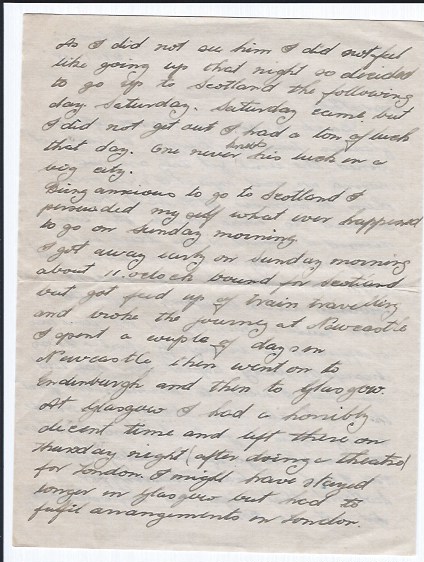 As I did not see him I did not feel
like going up that night so decided
to go up to Scotland the following
day Saturday. Saturday came, but
I did not get out I had a ton of luck
that day. One never knows his luck in a
big city.
Being anxious to go to Scotland I
persuaded my self what ever happened
to go on Sunday morning
I got away early on Sunday morning
about 11. oclock bound for Scotland
but got fed up of train travelling
and broke the journey at Newcastle
I spent a couple of days in
Newcastle then went on to
Endinburgh and then to Glasgow.
At Glasgow I had a horribly
decent time and left there on
Thursday night (after doing a theatre)
for London. I might have stayed
longer in Glasgow but had to
fulfil arrangements in London.